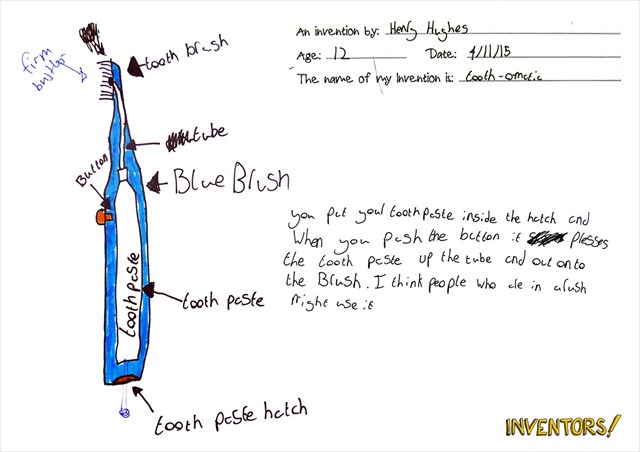 An invention by: Henry Hughes
Age: 12 Date: 4/11/15
The name of my invention is: tooth-omatic
firm
bristles
tooth brush
tube
Button
Blue Brush
toothpaste
tooth paste
tooth paste hatch
you put your toothpaste inside the hatch and
when you push the button it presses
the tooth paste up the tube and out onto
the Brush. I think people who are in a rush
might use it
INVENTORS!